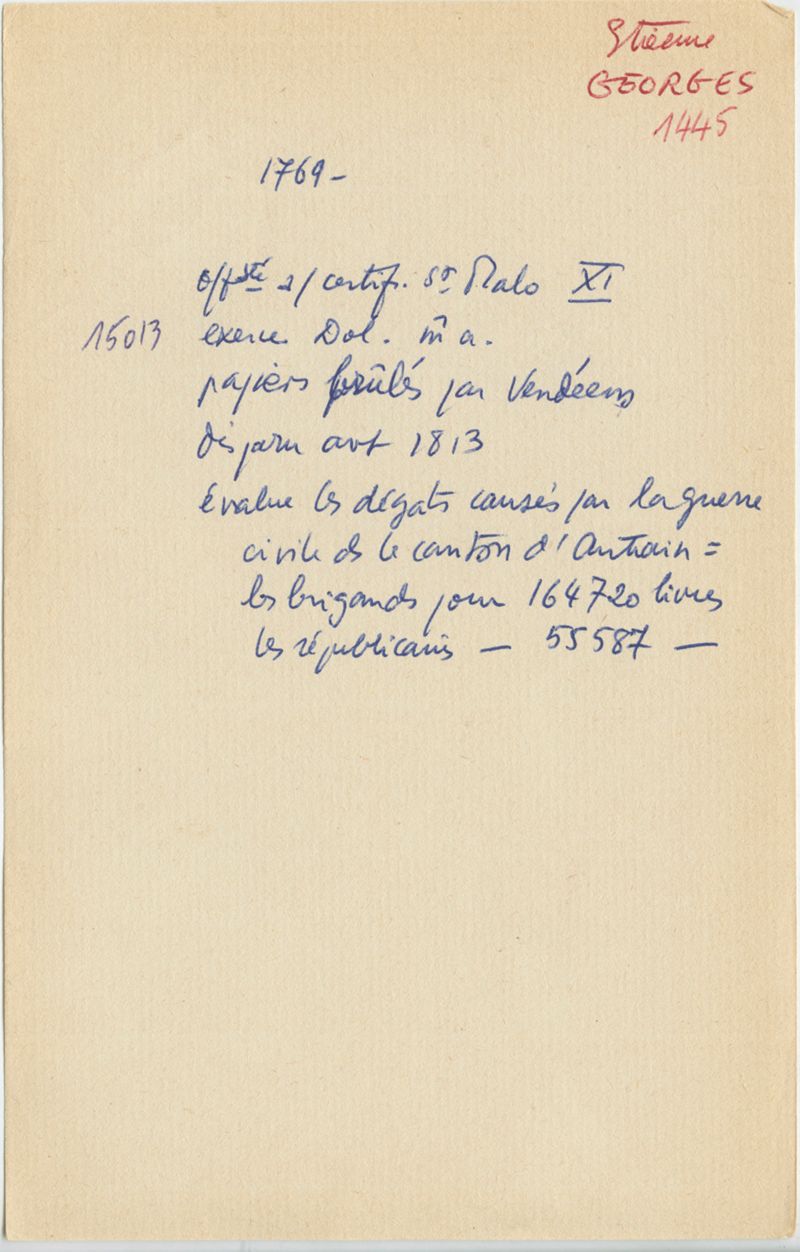 Etienne
GEORGES
1445
1769 -
off. sté s/ certif. St Malo XI
15013 exerce Dol. m̄ a.
papiers brûlés par Vendéens
disparu avt 1813
évalue les dégats causés par la guerre
civile ds le canton d'Antrain =
les brigands pour 164720 livres
les républicains — 55587 —